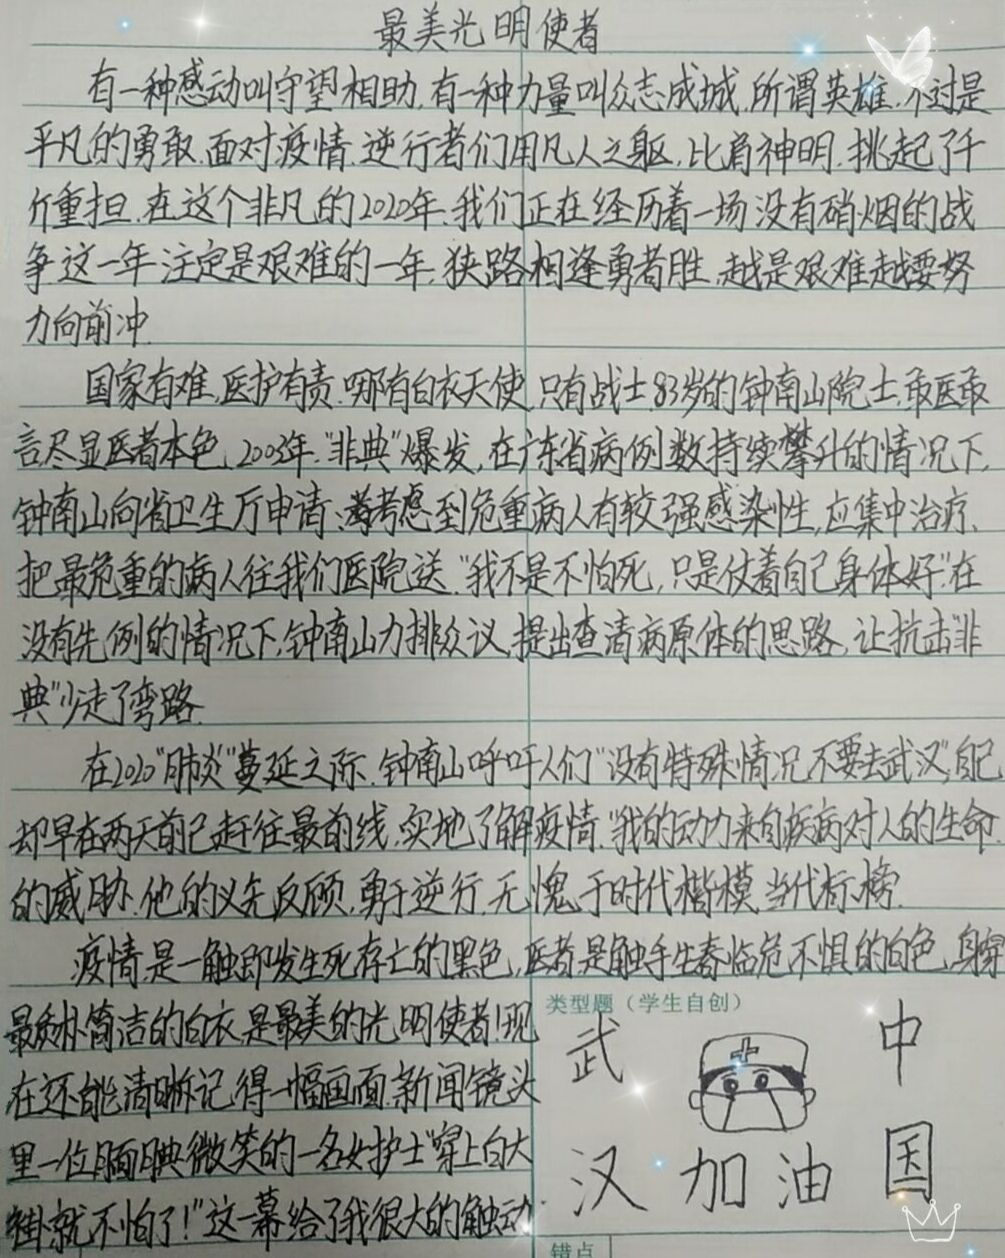 最美光明使者
有一种感动叫守望相助,有一种力量叫众志成城,所谓英雄,不过是
平凡的勇敢,面对疫情,逆行者们用凡人之躯,比肩神明,挑起了千
斤重担,在这个非凡的2020年,我们正在经历着一场没有硝烟的战
争,这一年注定是艰难的一年,狭路相逢勇者胜,越是艰难越要努
力向前冲.
国家有难,医护有责.哪有白衣天使,只有战士,83岁的钟南山院士,敢医敢
言尽显医者本色,2003年,"非典"爆发,在广东省病例数持续攀升的情况下,
钟南山向省卫生厅申请,考虑到危重病人有较强感染性,应集中治疗,
把最危重的病人往我们医院送."我不是不怕死,只是仗着自己身体好"在
没有先例的情况下,钟南山力排众议,提出查清病原体的思路,让抗击"非
典"少走了弯路.
在2020"肺炎"蔓延之际,钟南山呼吁人们"没有特殊情况,不要去武汉",自己
却早在两天前已赶往最前线,实地了解疫情."我的动力来自疾病对人的生命
的威胁.他的义无反顾,勇于逆行,无愧于时代楷模,当代标榜.
疫情是一触即发生死存亡的黑色,医者是触手生春临危不惧的白色,身穿
最质朴简洁的白衣,是最美的光明使者!现
在还能清晰记得一幅画面,新闻镜头
里一位腼腆微笑的一名女护士"穿上白大
褂就不怕了!"这一幕给了我很大的触动.
类型题(学生自创)
武 中
汉 加 油 国
错点